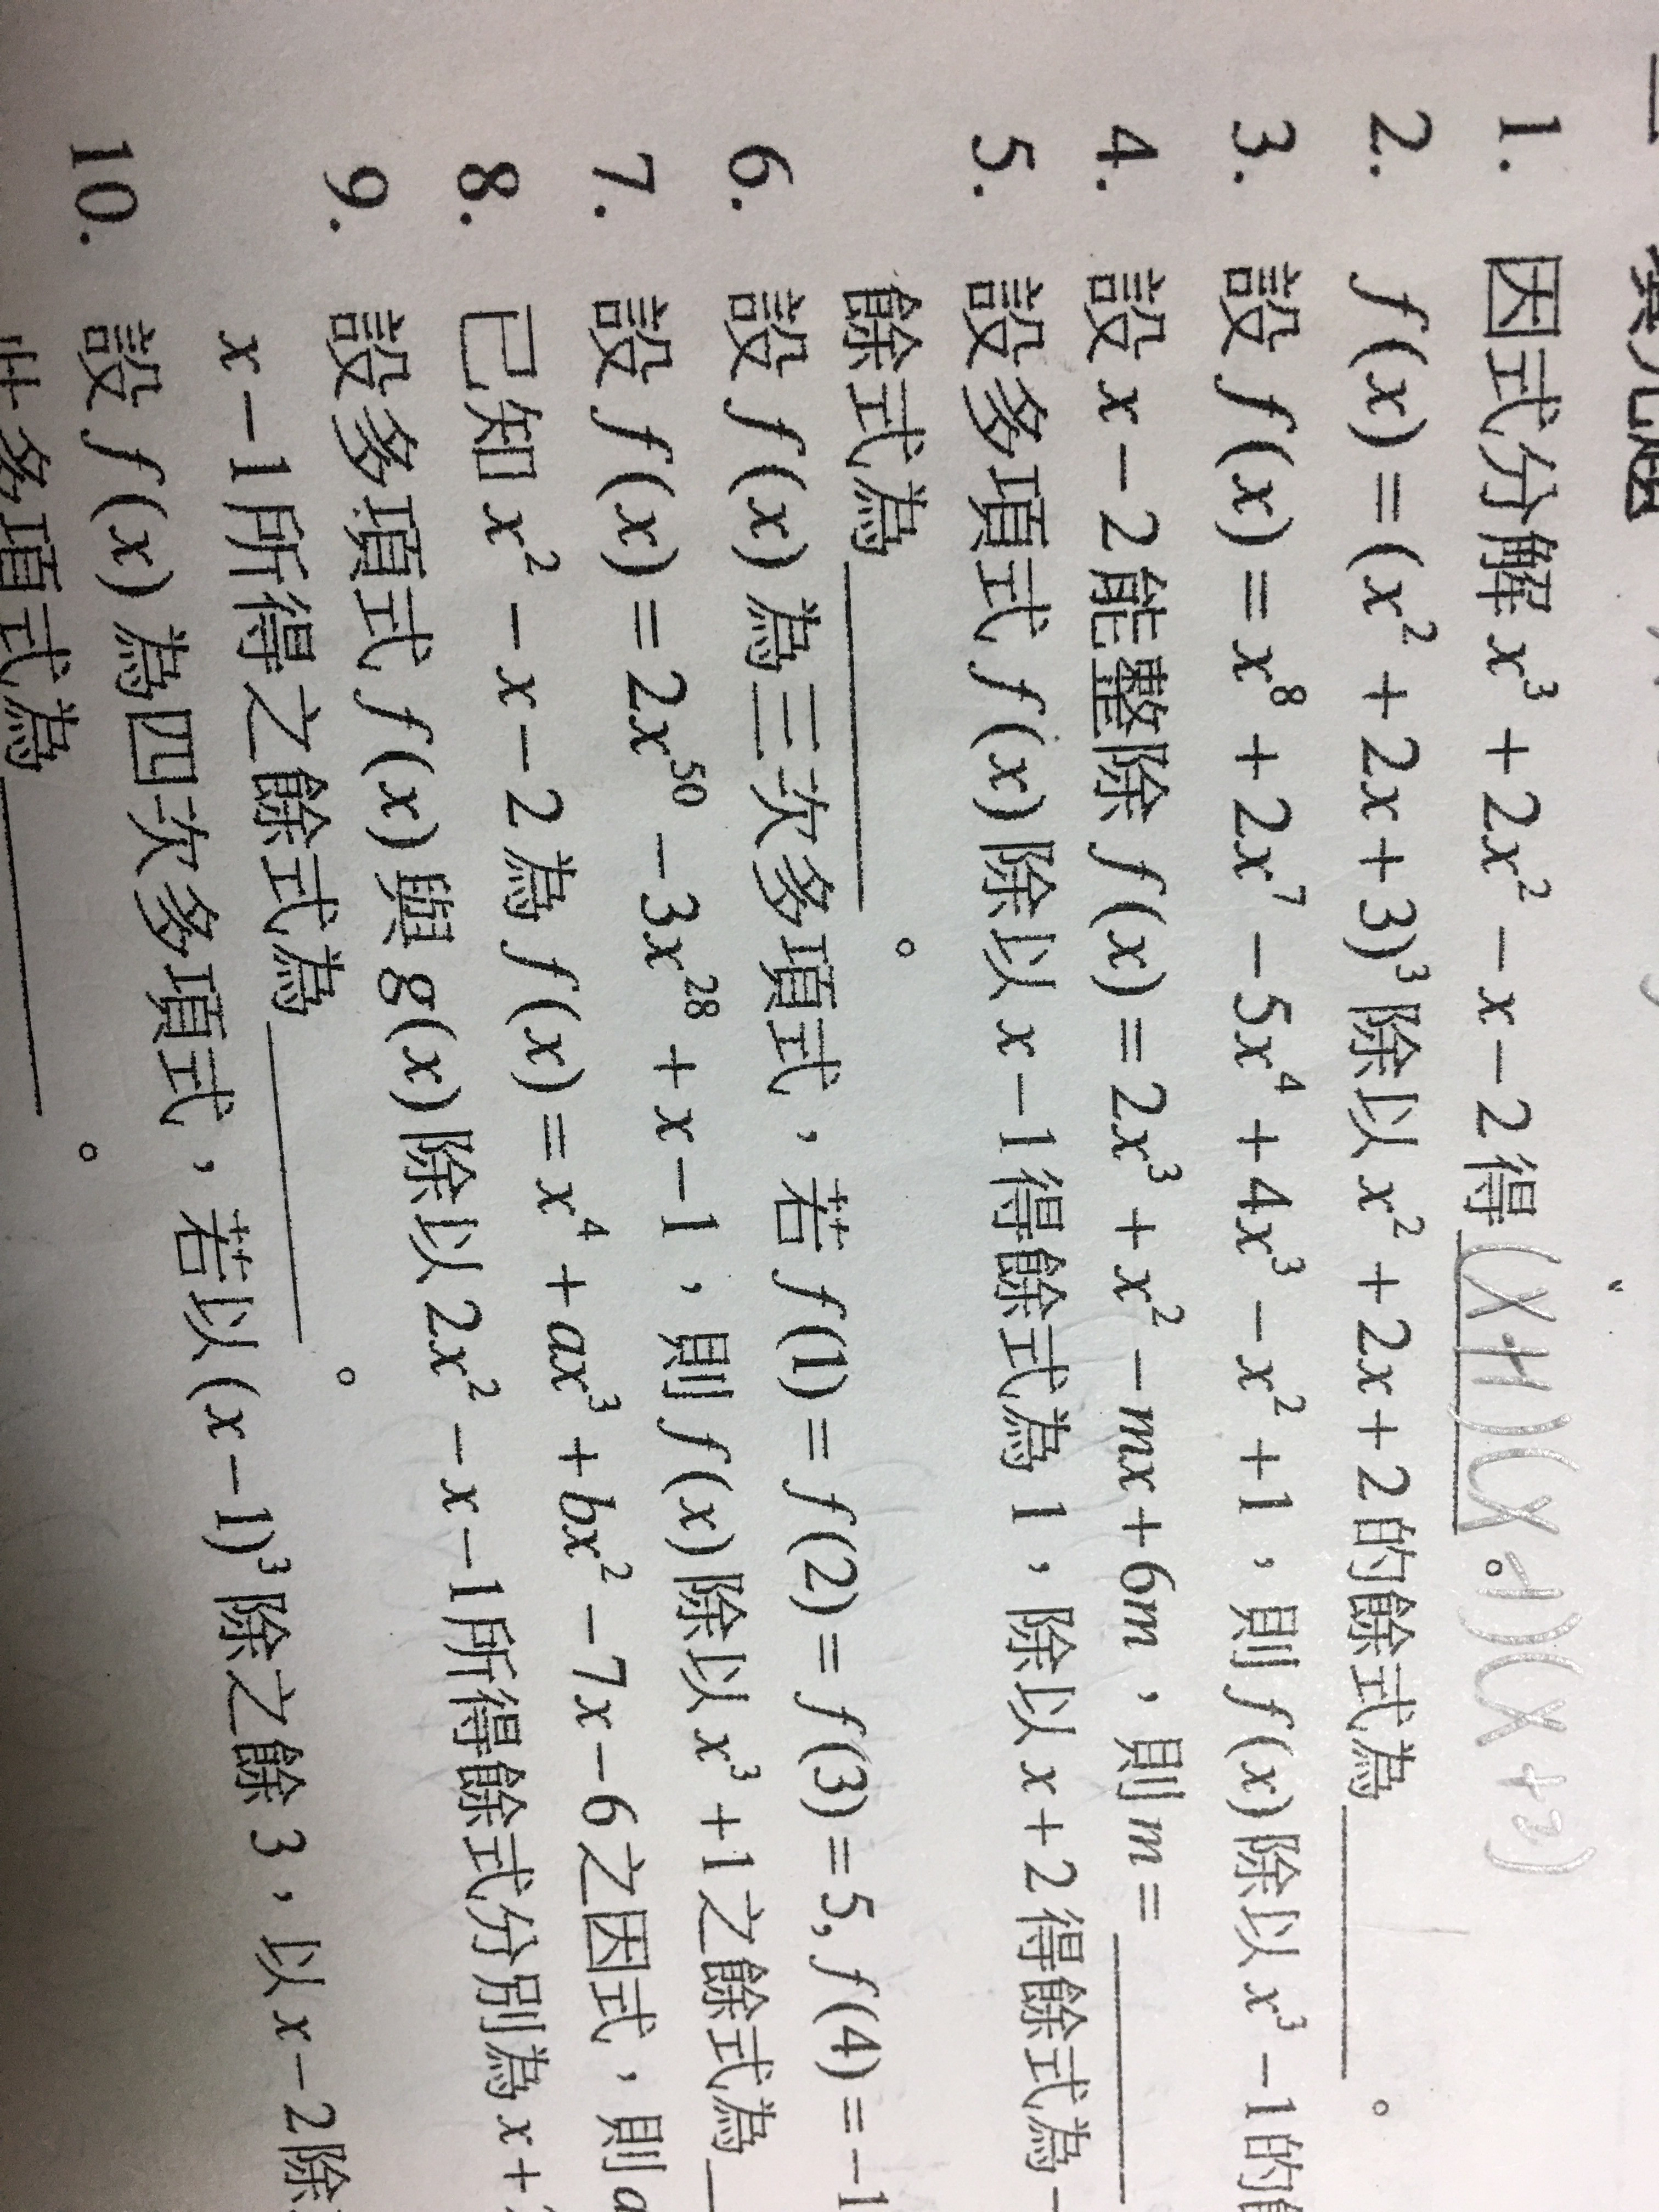 1. 因式分解 x³ + 2x² − x − 2 得 (x+1)(x-1)(x+2) 。
2. f(x) = (x² + 2x + 3)³ 除以 x² + 2x + 2 的餘式為 ______ 。
3. 設 f(x) = x⁸ + 2x⁷ − 5x⁴ + 4x³ − x² + 1，則 f(x) 除以 x³ − 1 的
4. 設 x − 2 能整除 f(x) = 2x³ + x² − mx + 6m，則 m = ______
5. 設多項式 f(x) 除以 x − 1 得餘式為 1，除以 x + 2 得餘式為 −
餘式為 ______ 。
6. 設 f(x) 為三次多項式，若 f(1) = f(2) = f(3) = 5, f(4) = −1
7. 設 f(x) = 2x⁵⁰ − 3x²⁸ + x − 1，則 f(x) 除以 x³ + 1 之餘式為 __
8. 已知 x² − x − 2 為 f(x) = x⁴ + ax³ + bx² − 7x − 6 之因式，則 a
9. 設多項式 f(x) 與 g(x) 除以 2x² − x − 1 所得餘式分別為 x +
x − 1 所得之餘式為 ______ 。
10. 設 f(x) 為四次多項式，若以 (x − 1)³ 除之餘 3，以 x − 2 除
此多項式為 ______ 。